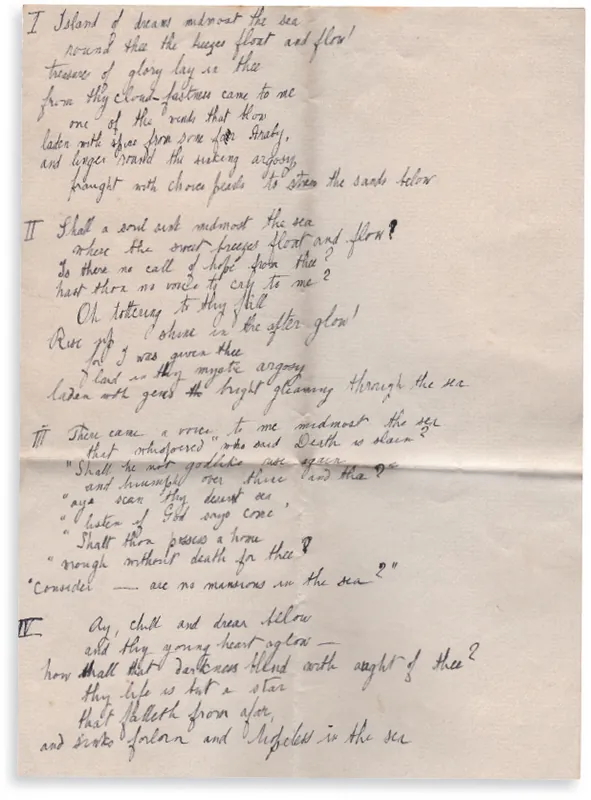 I Island of dreams midmost the sea
round thee the breezes float and flow!
treasures of glory lay in thee
from thy cloud-fastness came to me
one of the winds that blow
laden with spice from some far Araby,
and linger round the sinking argosy
fraught with choice pearls to strew the sands below
II Shall a soul sink midmost the sea
where the sweet breezes float and flow?
Is there no call of hope from thee?
hast thou no voice to call to me?
Oh tottering to thy fall
Rise up shine in the after glow!
for I was given thee
I laid in thy mystic argosy
laden with gems bright gleaming through the sea
III There came a voice to me midmost the sea
that whispered "who said Death is slain?
"Shall he not godlike rise again
and triumph over thine and thee?"
"aye scan thy desert sea
"listen if God says come,
"Shalt thou possess a home
"wrough without death for thee?
"Consider — are no mansions in the sea?"
IV Ay, chill and drear below
and thy young heart aglow —
how shall that darkness blend with aught of thee?
thy life is but a star
that falleth from afar,
and sinks forlorn and hopeless in the sea